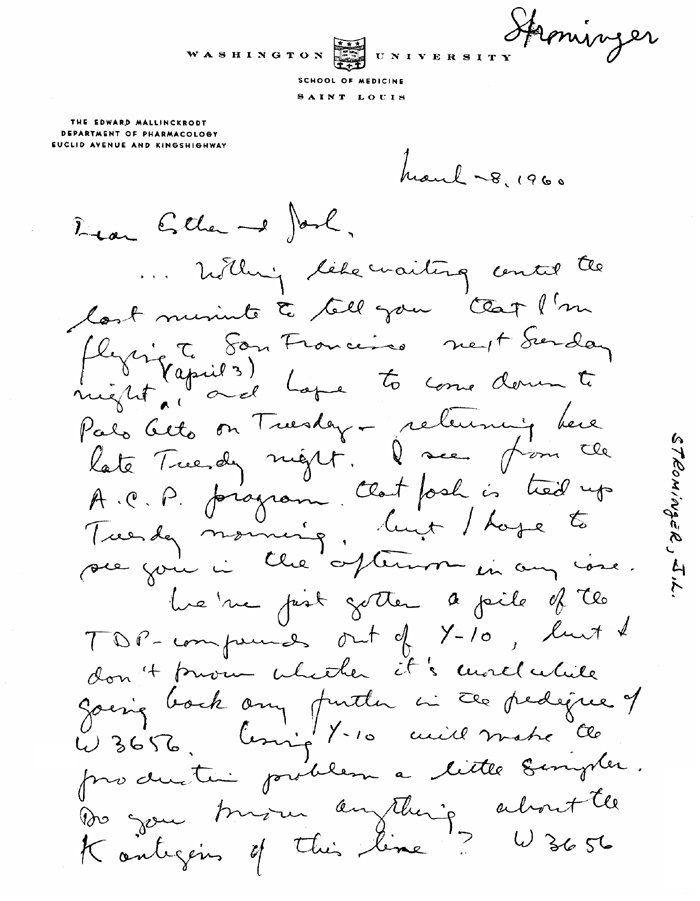 Strominger
WASHINGTON UNIVERSITY
SCHOOL OF MEDICINE
SAINT LOUIS
THE EDWARD MALLINCKRODT
DEPARTMENT OF PHARMACOLOGY
EUCLID AVENUE AND KINGSHIGHWAY
March 28, 1960
Dear Esther and Josh,
... Nothing like waiting until the
last minute to tell you that I'm
flying to San Francisco next Sunday
night (april 3), and hope to come down to
Palo Alto on Tuesday - returning here
late Tuesday night. I see from the
A.C.P. program that Josh is tied up
Tuesday morning, but I hope to
see you in the afternoon in any case.
We've just gotten a pile of the
TDP-compounds out of Y-10, but I
don't know whether it's worthwhile
going back any further in the pedigree of
W 3656. Using Y-10 will make the
production problem a little simpler.
Do you know anything about the
K antigens of this line? W 3656
STROMINGER, J.L.